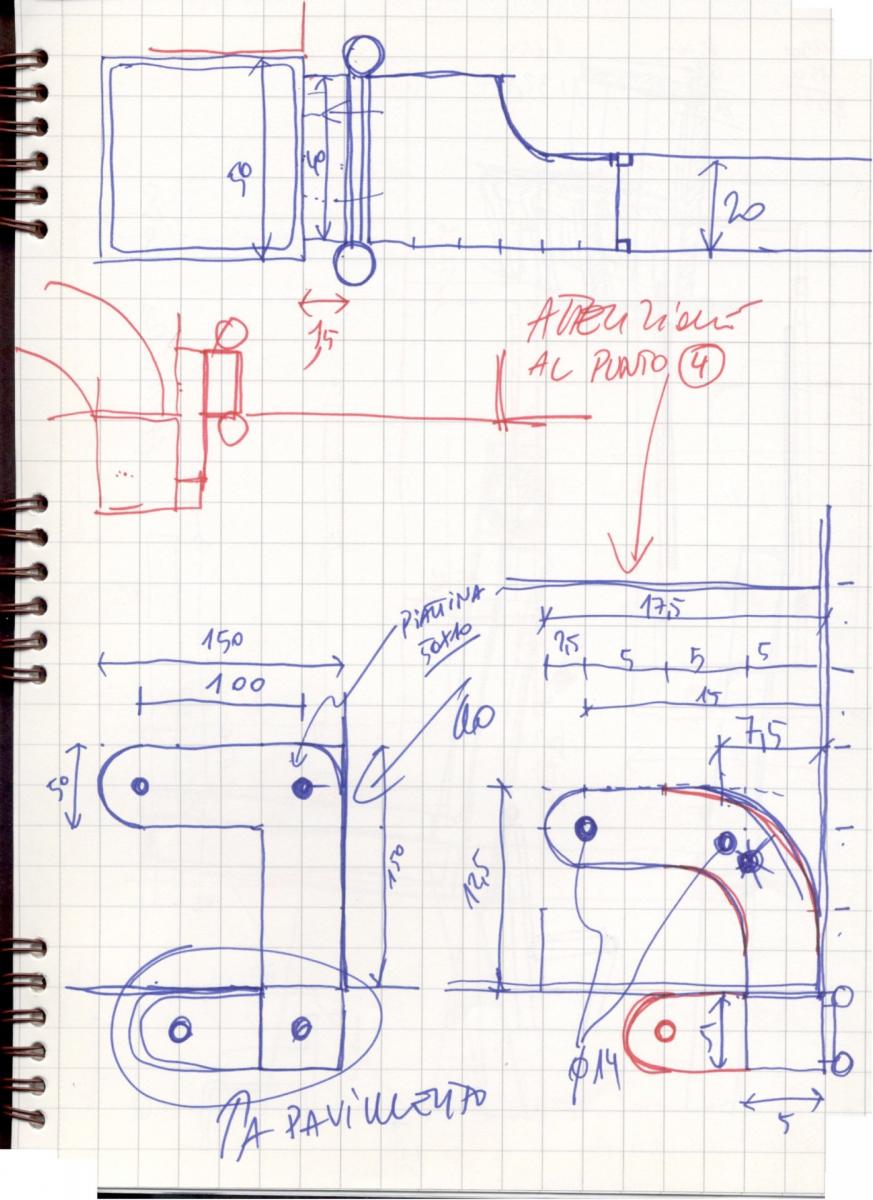 50
40
20
15
ATTENZIONE
AL PUNTO 4
17,5
PIATTINA
50X10
150
2,5
5
5
5
100
15
7,5
50
150
12,5
5
Ø14
5
A PAVIMENTO